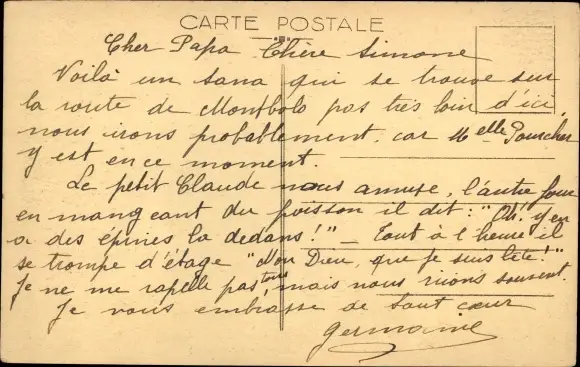 CARTE POSTALE
Cher Papa Chère Simone
Voilà un sana qui se trouve sur
la route de Montbolo pas très loin d'ici
nous irons probablement car Melle Pourcher
y est en ce moment.
Le petit Claude nous amuse, l'autre jour
en mangeant du poisson il dit: "Oh! y en
a des épines la dedans!" _ Tout à l'heure il
se trompe d'étage "Mon Dieu, que je suis bête!"
Je ne me rapelle pas tous, mais nous rions souvent.
Je vous embrasse de tout cœur
Germaine